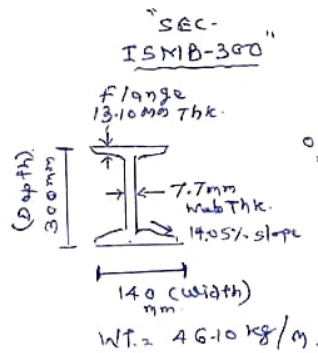 "SEC-
ISMB-300"
Flange
13.10mm Thk.
(Depth)
300mm
7.7mm
Web Thk.
14.05% slope
140 (width)
mm.
WT. = 46.10 kg/m.